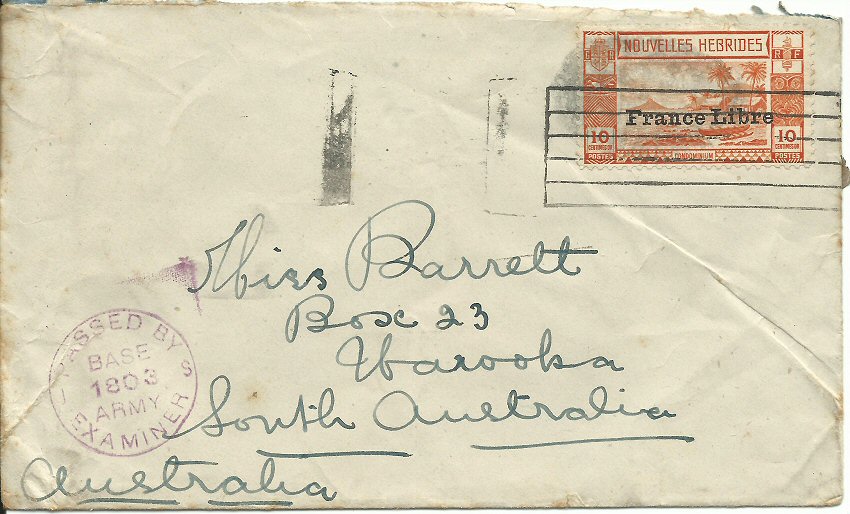 NOUVELLES HEBRIDES
R F
France Libre
10 10
CENTIMES OR CENTIMES OR
POSTES CONDOMINIUM POSTES
Miss Barrett
Box 23
Warooka
South Australia
Australia
PASSED BY
BASE
1803
ARMY
EXAMINER